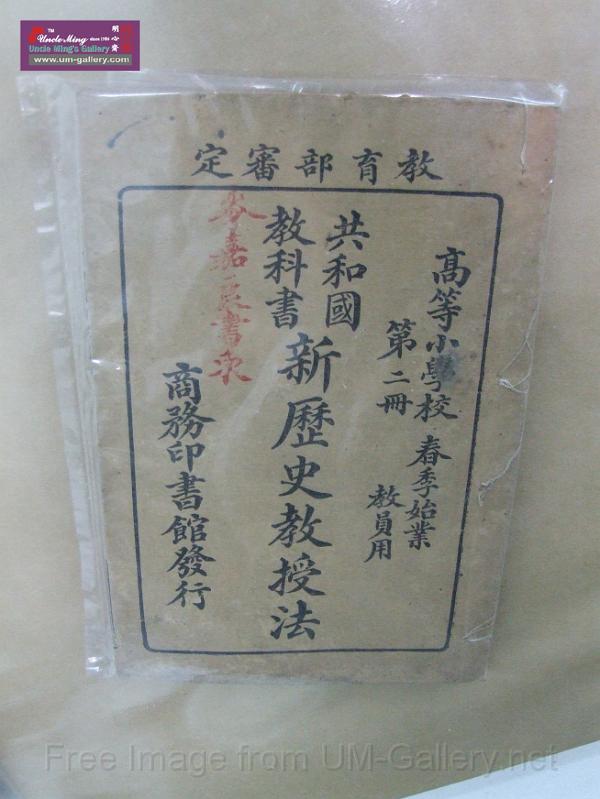 TM Uncle Ming since 1986
明心齋
Uncle Ming's Gallery
www.um-gallery.com
教育部審定
高等小學校 春季始業
第二冊 教員用
共和國
教科書
新歷史教授法
商務印書館發行
Free Image from UM-Gallery.net